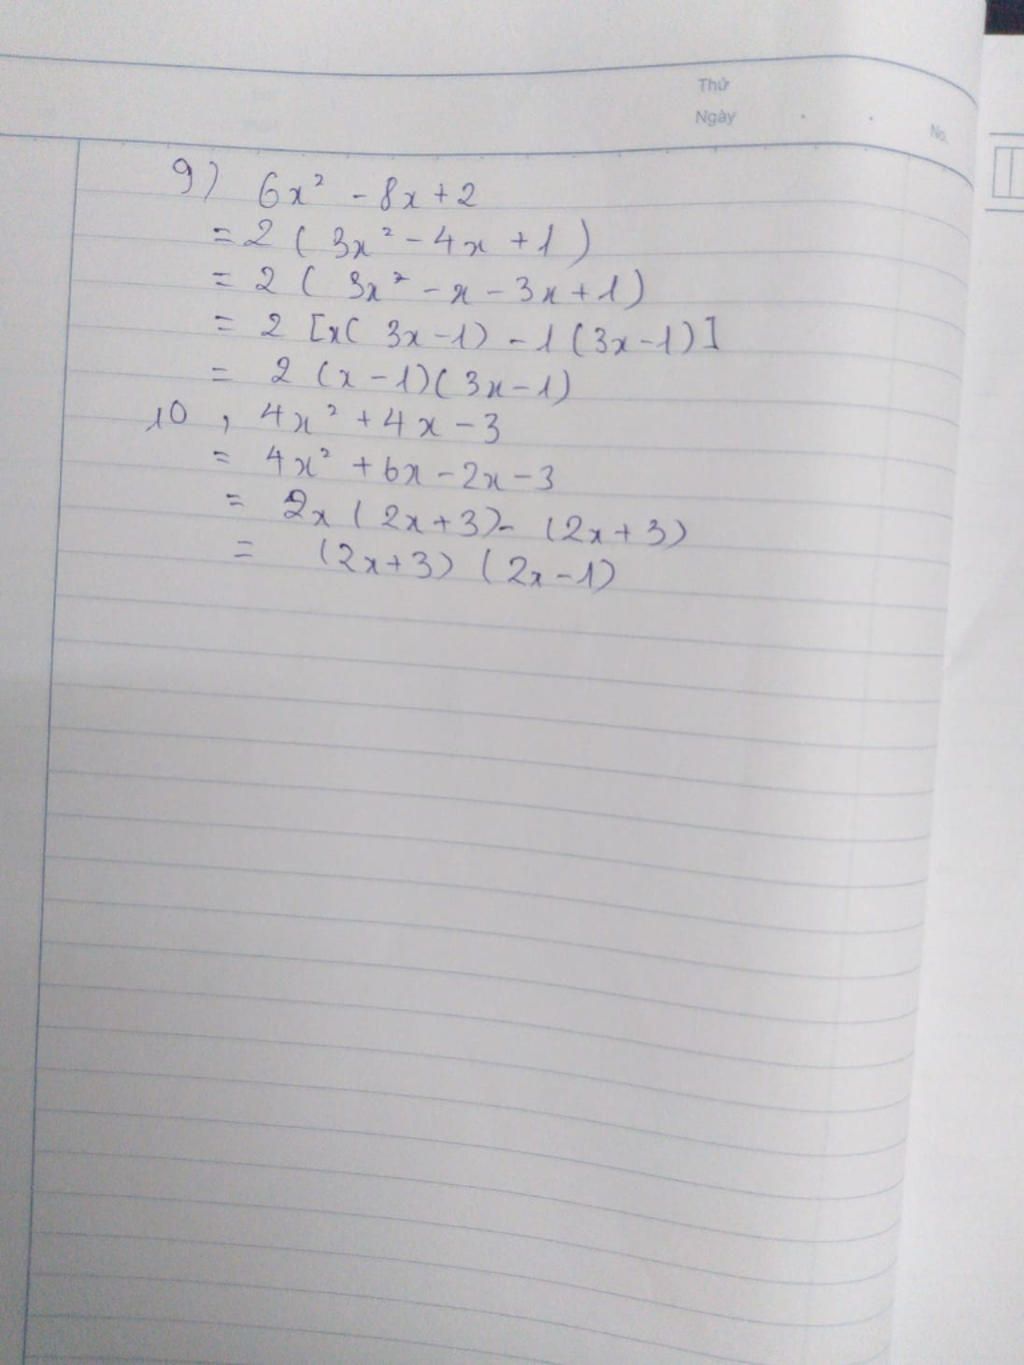 Thứ
Ngày
No.
9) 6x² - 8x + 2
= 2 ( 3x² - 4x + 1 )
= 2 ( 3x² - x - 3x + 1 )
= 2 [x( 3x - 1) - 1 (3x - 1)]
= 2 (x - 1)( 3x - 1)
10, 4x² + 4x - 3
= 4x² + 6x - 2x - 3
= 2x ( 2x + 3) - (2x + 3)
= (2x + 3) (2x - 1)